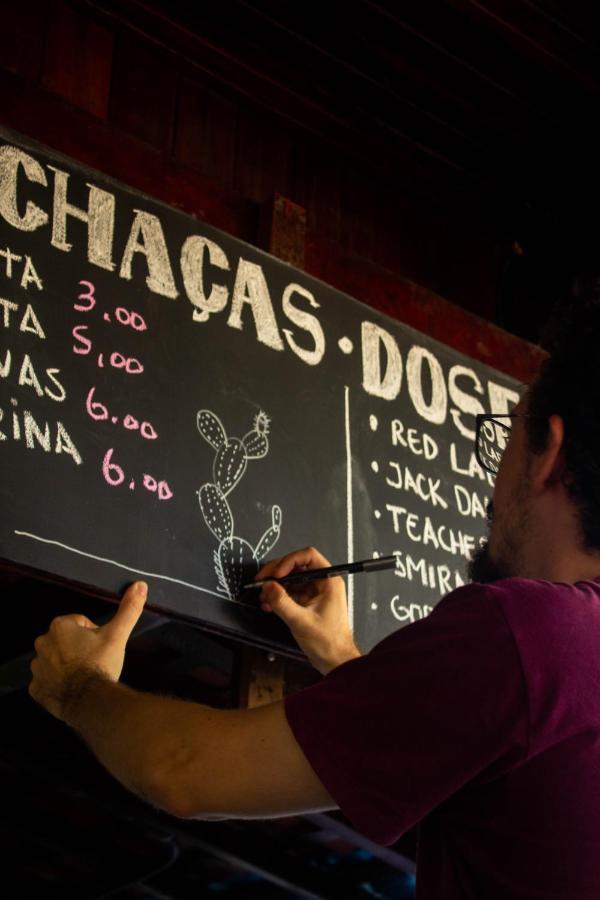 CHAÇAS · DOSE
TA 3.00
TA 5,00
VAS 6.00
RINA 6.00
• RED LA
• JACK DA
• TEACHE
• SMIRN